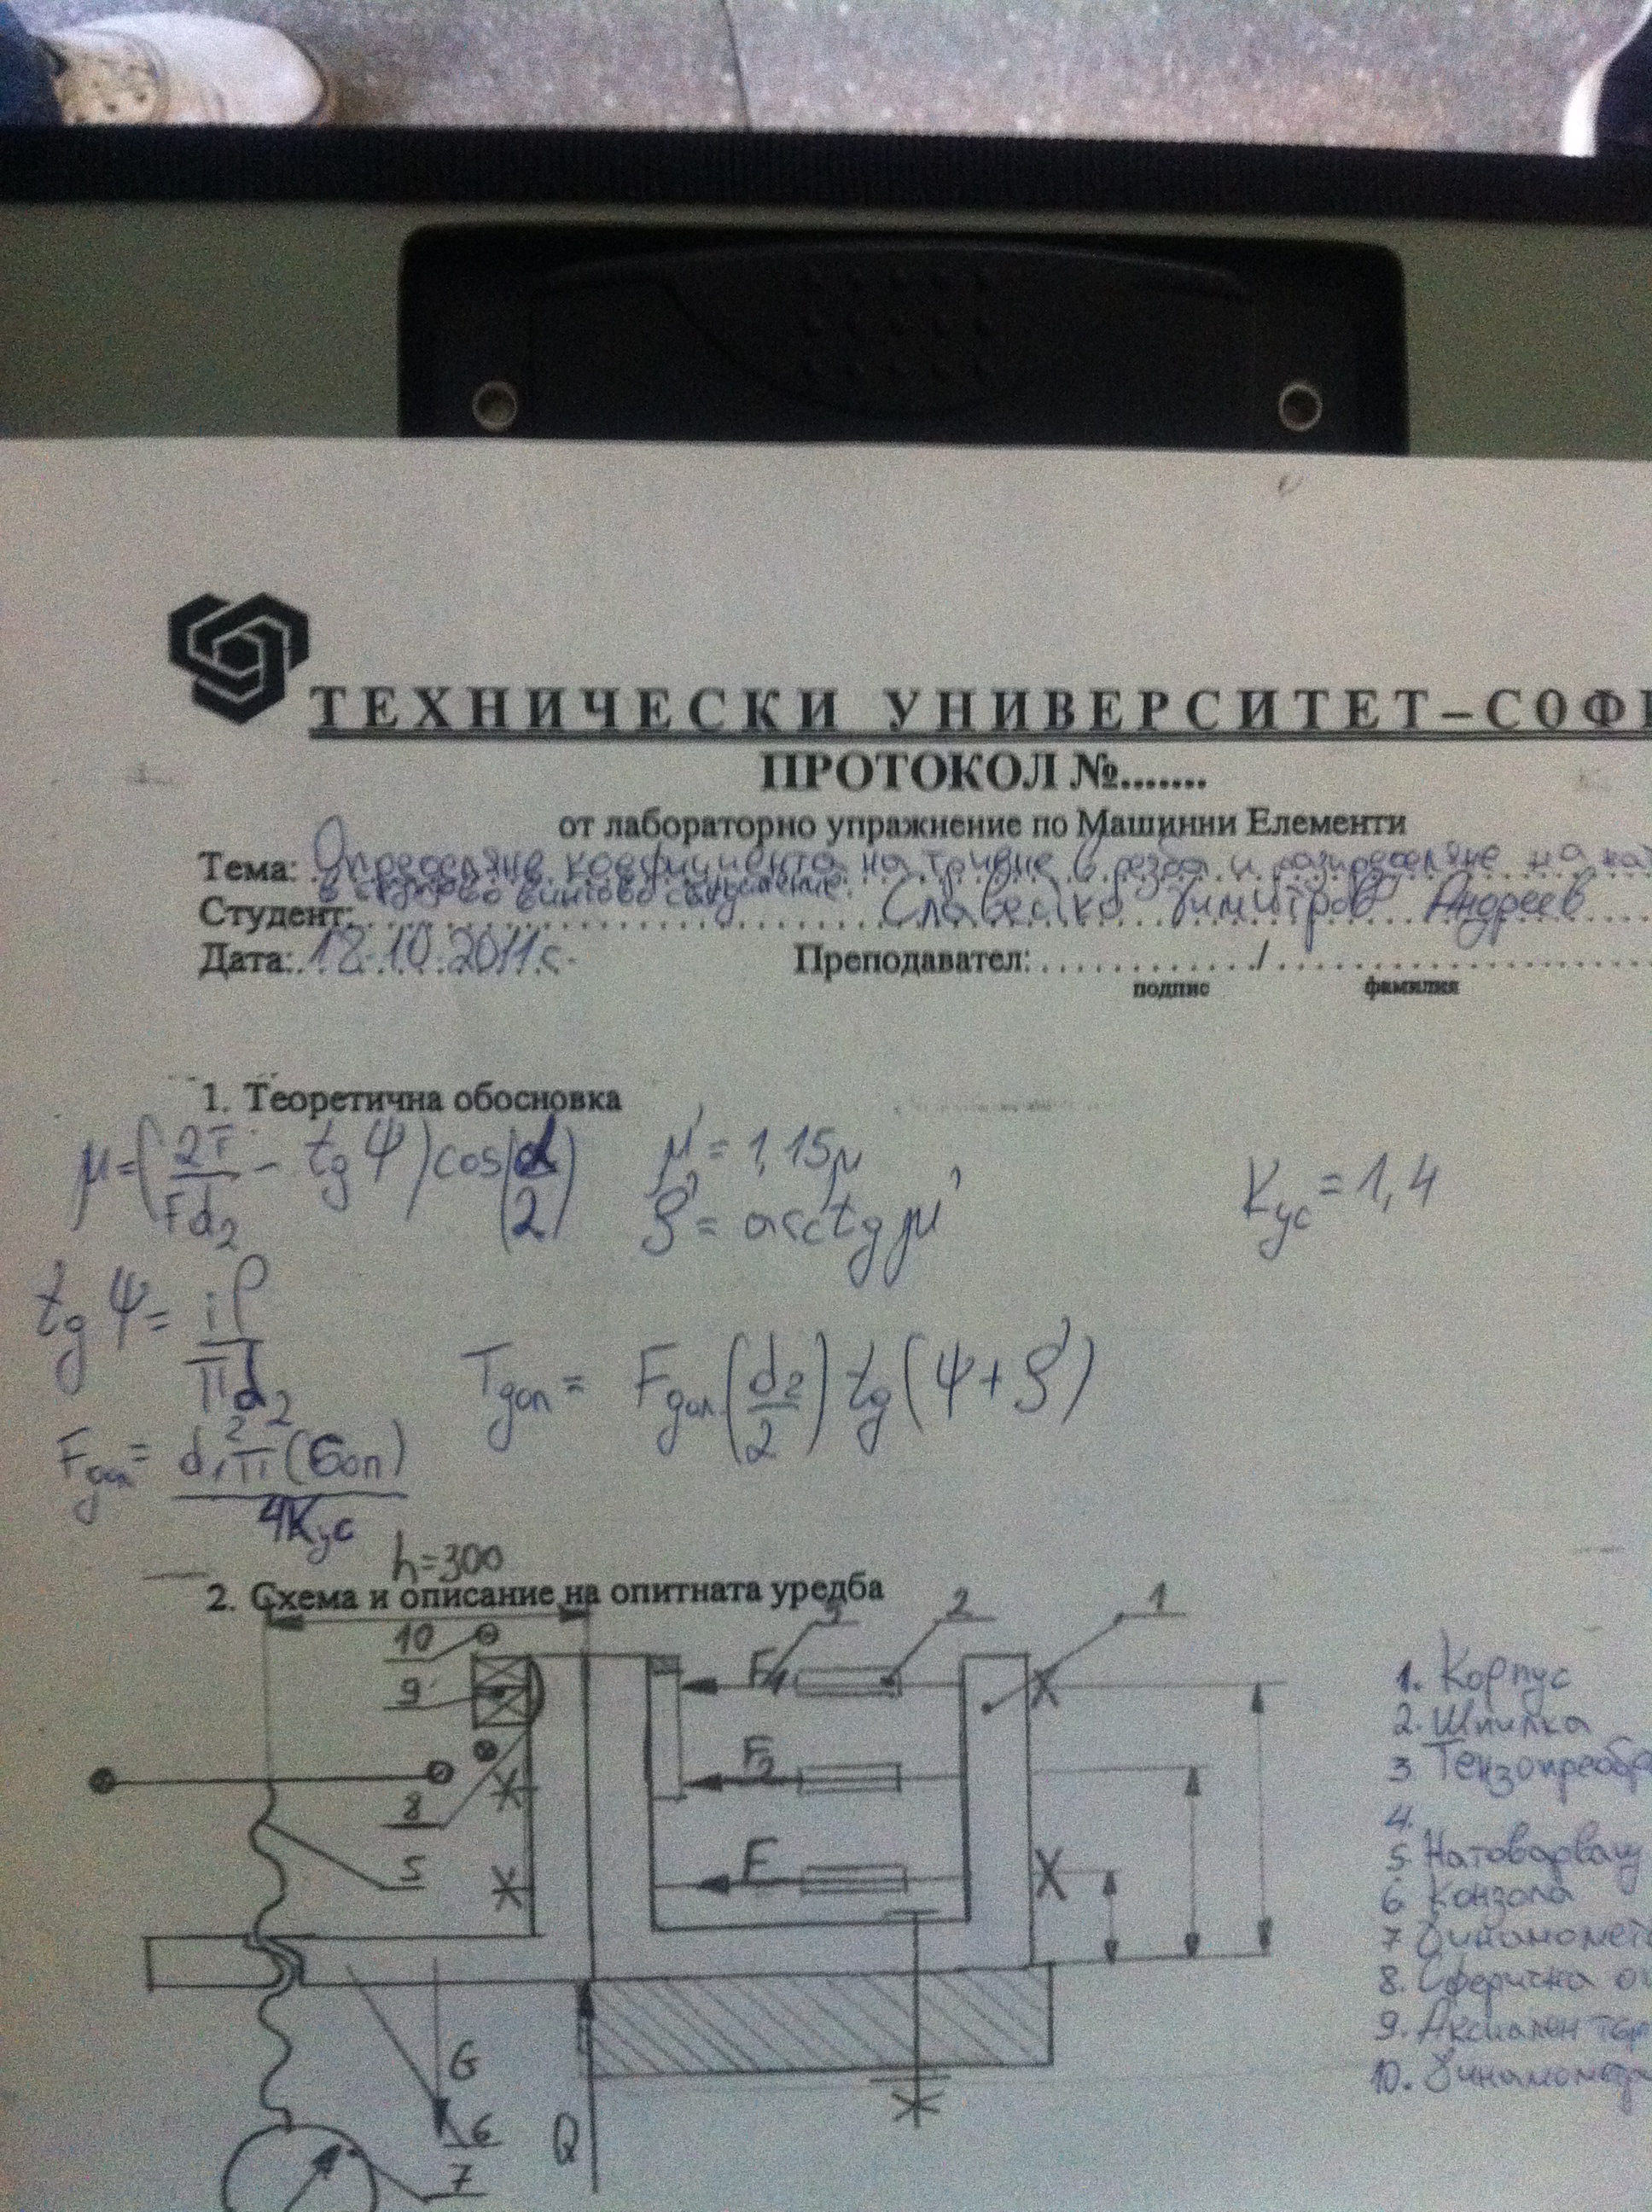 ТЕХНИЧЕСКИ УНИВЕРСИТЕТ–СОФИ
ПРОТОКОЛ №.......
от лабораторно упражнение по Машинни Елементи
Тема: Определяне коефициента на триене в резба и разпределяне на
в винтово съединение.
Студент: Славейко Димитров Андреев
Дата: 18.10.2011г. Преподавател: ............/............
подпис фамилия
1. Теоретична обосновка
μ=(2T/Fd₂ - tg ψ)cos(α/2) μ' = 1,15μ Kус = 1,4
ρ' = arctg μ'
tg ψ = iP/πd₂
Tдоп = Fдоп(d₂/2)tg(ψ+ρ')
Fдоп = d₁²π(σоп)/4Kус
h=300
2. Схема и описание на опитната уредба
3 2 1
10
9
F1
F2
8
5
F
G
6
7
Q
1. Корпус
2. Шпилка
3. Тензопреобра
4.
5. Натоварващ
6 Конзола
7 Динамомет
8. Сферична
9. Аксиален
10. Динамометр